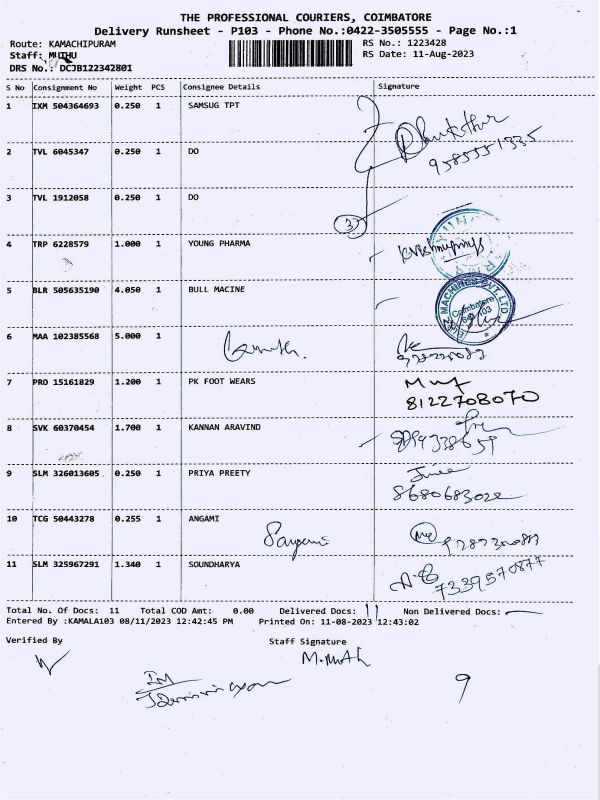 THE PROFESSIONAL COURIERS, COIMBATORE
Delivery Runsheet - P103 - Phone No.:0422-3505555 - Page No.:1
Route: KAMACHIPURAM RS No.: 1223428
Staff: MUTHU RS Date: 11-Aug-2023
DRS No.: DCJB122342801
S No Consignment No Weight PCS Consignee Details Signature
1 IXM 504364693 0.250 1 SAMSUG TPT
2 TVL 6045347 0.250 1 DO
3 TVL 1912058 0.250 1 DO
3
4 TRP 6228579 1.000 1 YOUNG PHARMA
5 BLR 505635190 4.050 1 BULL MACINE
MACHINES PVT. LTD
Coimbatore
6 MAA 102385568 5.000 1
7 PRO 15161829 1.200 1 PK FOOT WEARS
8122708070
8 SVK 60370454 1.700 1 KANNAN ARAVIND
9 SLM 326013605 0.250 1 PRIYA PREETY
8680683022
10 TCG 50443278 0.255 1 ANGAMI
11 SLM 325967291 1.340 1 SOUNDHARYA
7339570877
Total No. Of Docs: 11 Total COD Amt: 0.00 Delivered Docs: 11 Non Delivered Docs:
Entered By :KAMALA103 08/11/2023 12:42:45 PM Printed On: 11-08-2023 12:43:02
Verified By Staff Signature
M.Muth
9